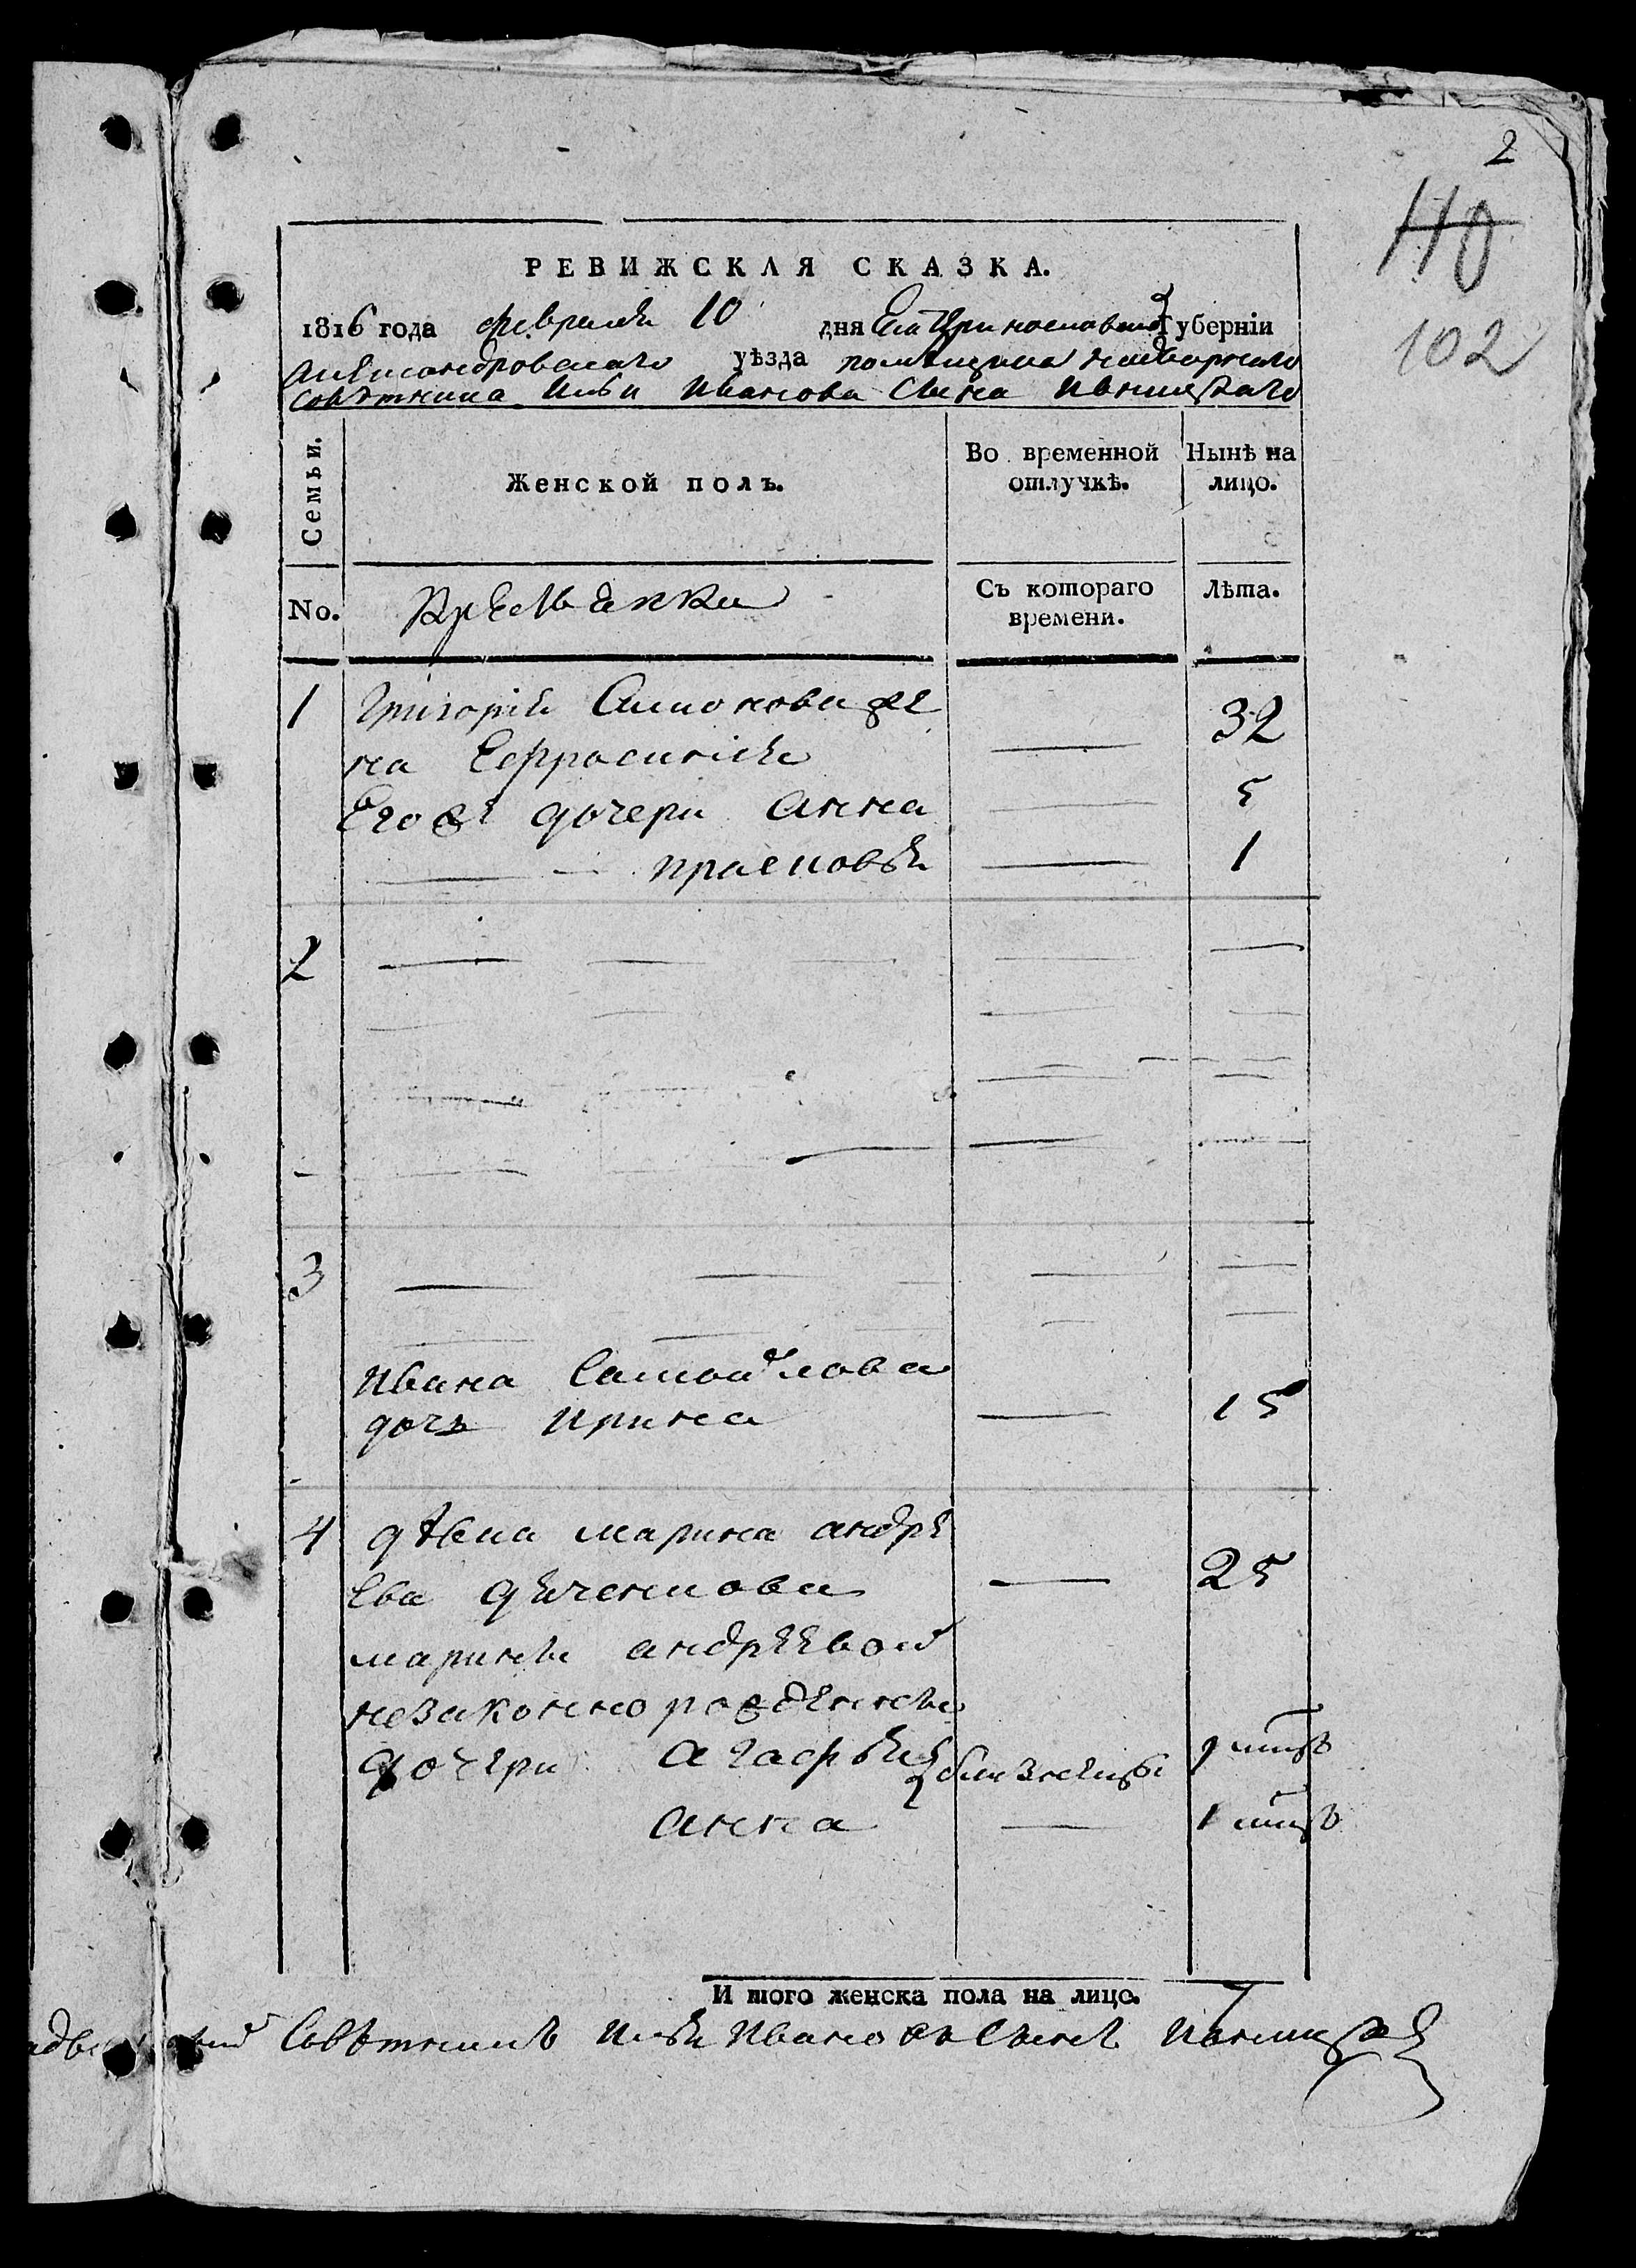 2
110
102
РЕВИЖСКАЯ СКАЗКА.
1816 года февраля 10 дня Екатеринославской Губерніи
Александровскаго уѣзда помѣщика надворнаго
совѣтника Ильи Иванова сына
Семьи.
Женской полъ.
Во временной отлучкѣ.
Нынѣ на лицо.
No.
Крестьянки
Съ котораго времени.
Лѣта.
1 Григорія Самонова же
на Евфросинія — 32
Его дочери Анна — 5
— — Прасковья — 1
2 — — — — —
3 — — — —
Ивана Самойлова
дочь Ирина — 15
4 дѣвка Марина Андре
ева — 25
Марины Андреевой
незаконно рожденные
дочери Агафья близнецы 1
Анна — 1
И того женска пола на лицо. 7
Совѣтникъ Илья Ивановъ сынъ